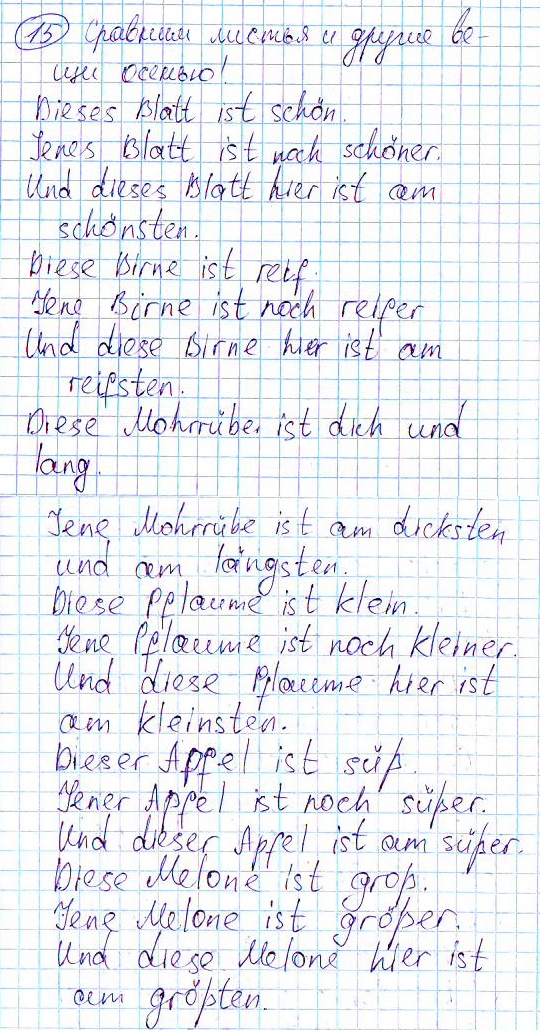 15 Сравним листья и другие ве-
щи осенью!
Dieses Blatt ist schön.
Jenes Blatt ist noch schöner.
Und dieses Blatt hier ist am
schönsten.
Diese Birne ist reif.
Jene Birne ist noch reifer
Und diese Birne hier ist am
reifsten.
Diese Mohrrübe ist dich und
lang.
Jene Mohrrübe ist am dicksten
und am längsten.
Diese Pflaume ist klein.
Jene Pflaume ist noch kleiner.
Und diese Pflaume hier ist
am kleinsten.
Dieser Apfel ist süß.
Jener Apfel ist noch süßer.
Und dieser Apfel ist am süßer.
Diese Melone ist groß.
Jene Melone ist größer.
Und diese Melone hier ist
am größten.